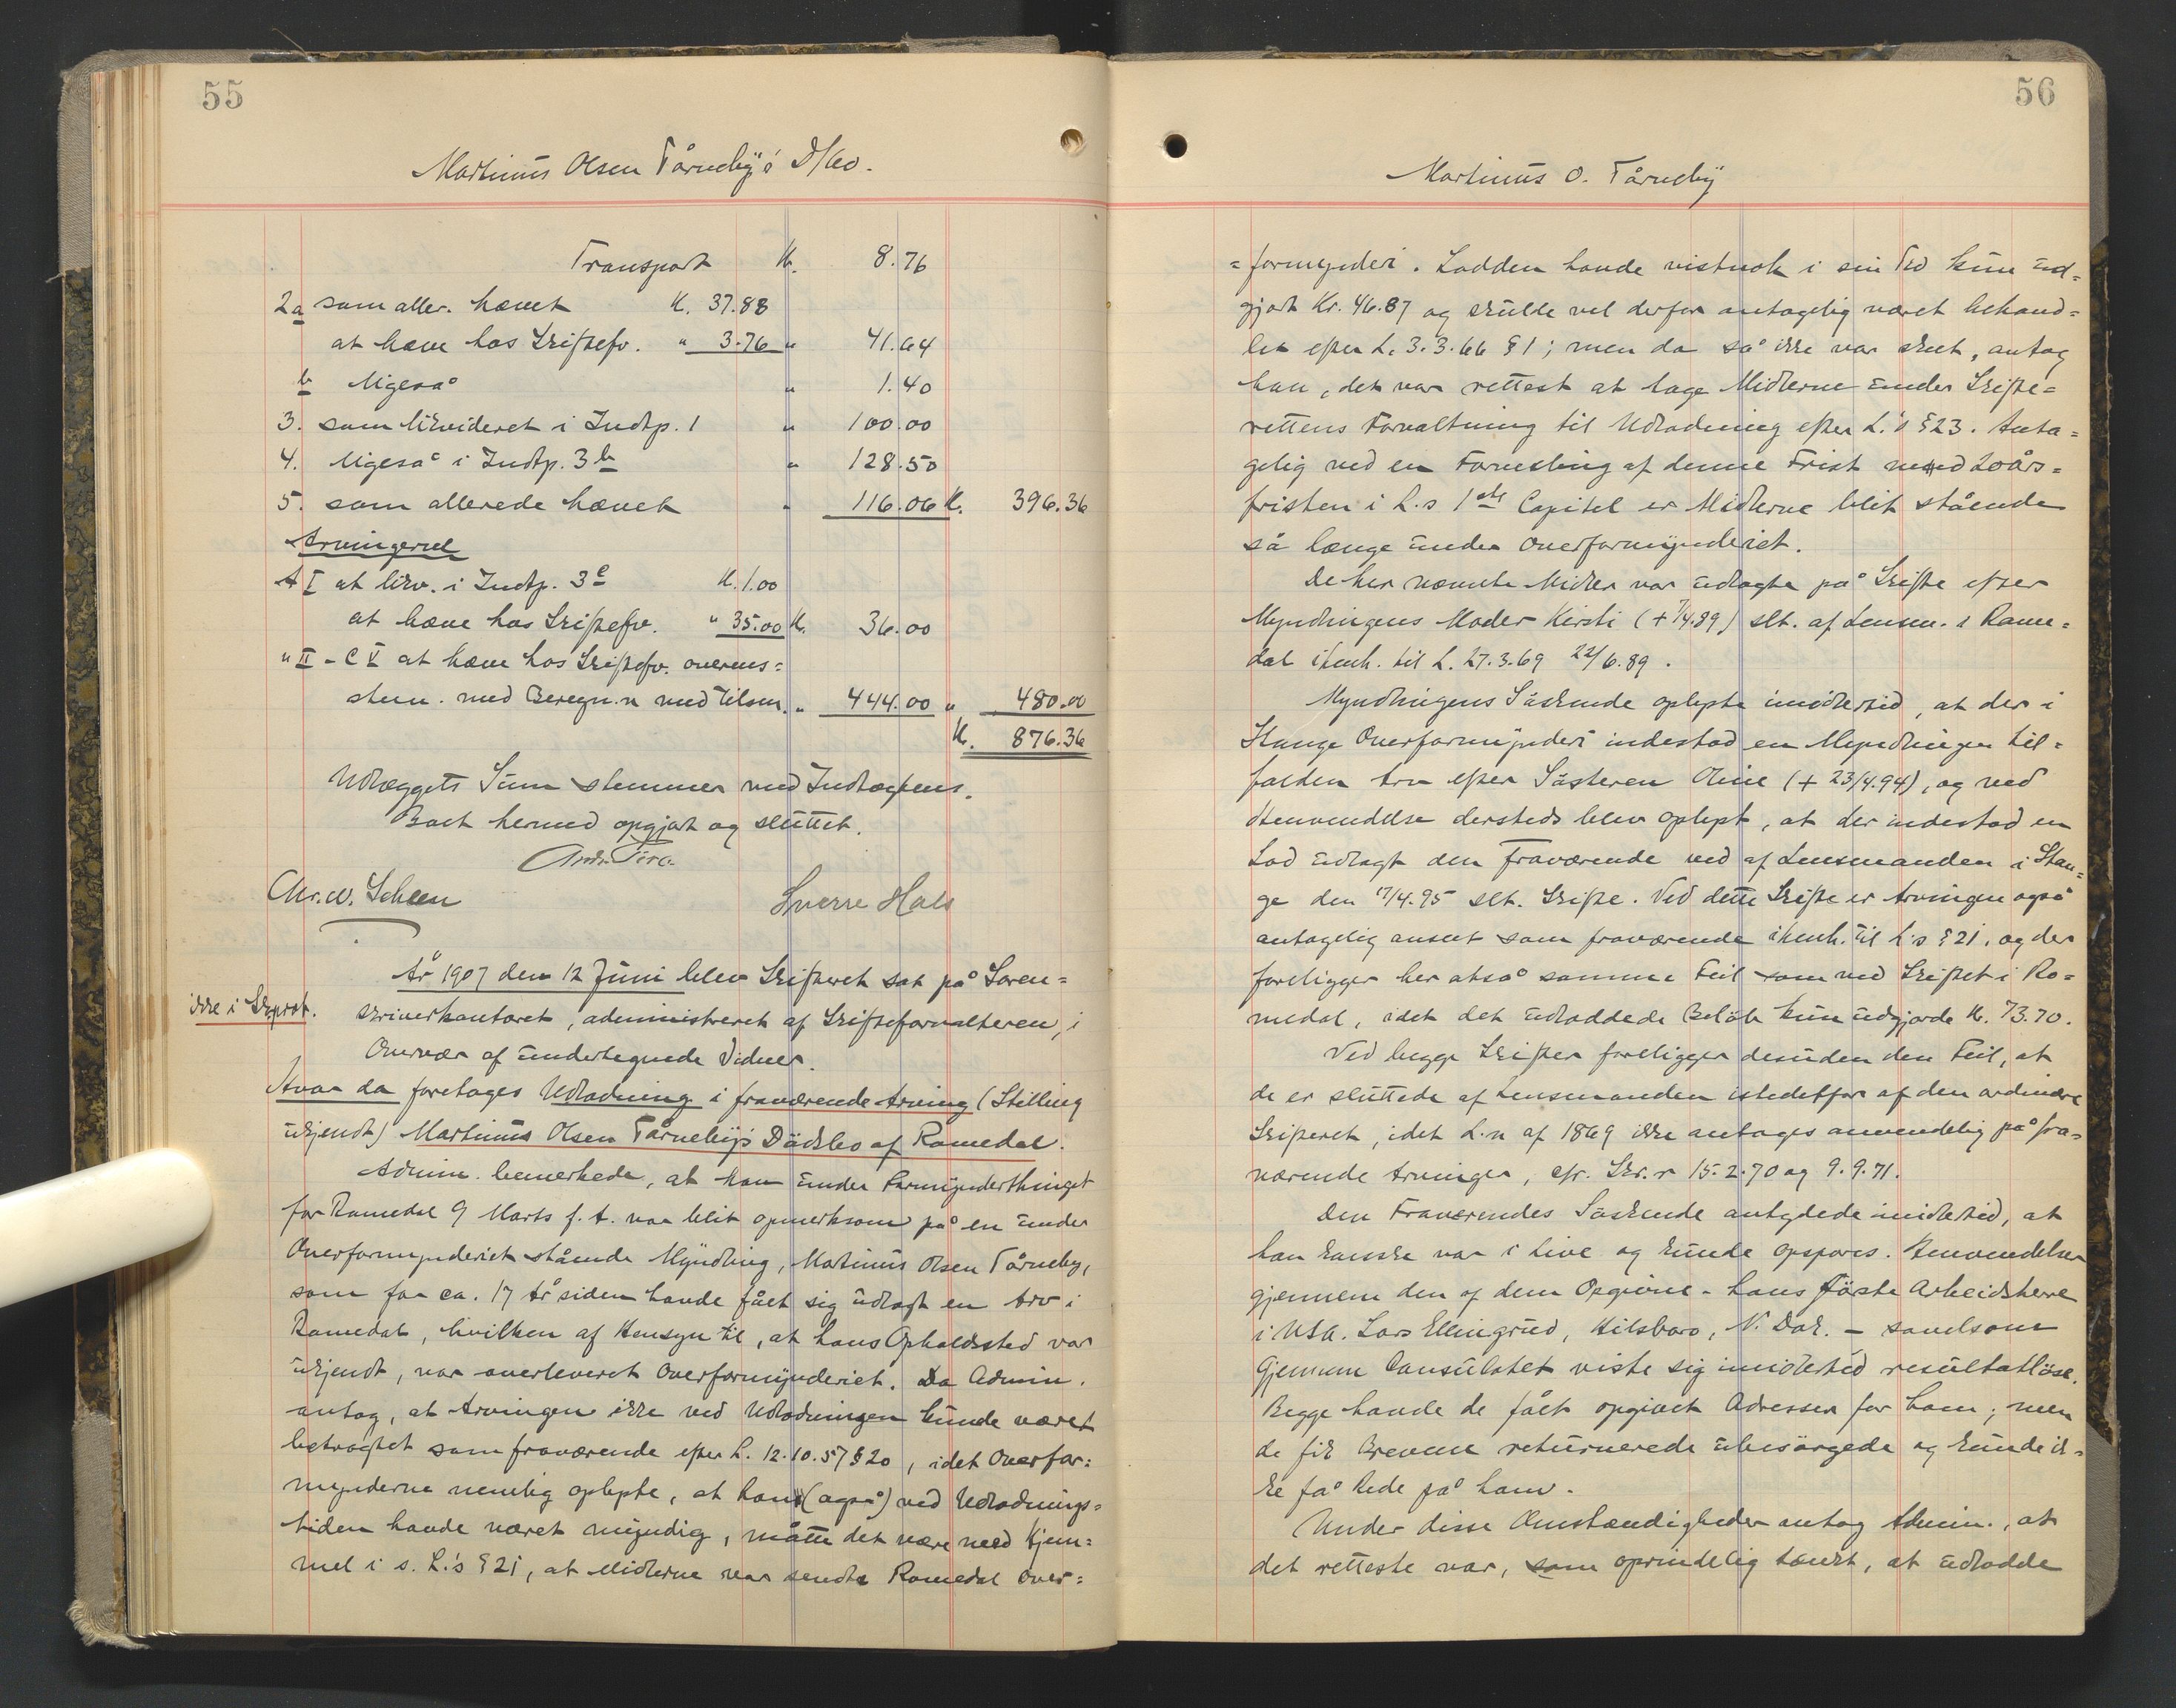 55
Martinus Olsen Tårneby's D/bo.
Transport K. 8.76
2a som aller. hævet K. 37.88
at hæve hos Skiftefv. " 3.76 " 41.64
b ligeså " 1.40
3. som likvideret i Indtp. 1 " 100.00
4. ligeså i Indtp. 3b " 128.50
5. som allerede hævet " 116.06 K. 396.36
Arvingerne
A I at likv. i Indtp. 3c K. 1.00
at hæve hos Skiftefv. " 35.00 K. 36.00
" II - C V at hæve hos Skiftefv. overens=
stem. med Beregn.n med tilsm. " 444.00 " 480.00
K. 876.36
Udlæggets Sum stemmer med Indtægtens.
Boet hermed opgjort og sluttet.
Chr. W. Scheen Sverre Hals
År 1907 den 12 Juni blev Skifteret sat på Soren=
ikke i Skprot. skriverkontoret, administreret af Skifteforvalteren, i
Overvær af undertegnede Vidner.
Hvor da foretages Udlodning i fraværende Arving (Stilling
ukjendt) Martinus Olsen Tårneby's Dödsbo af Romedal.
Admin. bemerkede, at han under Formynderthinget
for Romedal 9 Marts f. A. var blit opmerksom på en under
Overformynderiet stående Myndling, Martinus Olsen Tårneby,
som for ca. 17 År siden havde fået sig udlagt en Arv i
Romedal, hvilken af Hensyn til, at hans Opholdssted var
ukjendt, var overleveret Overformynderiet. Da Admin.
antog, at Arvingen ikke ved Udlodningen kunde været
betragtet som fraværende efter L. 12.10.57 § 20, idet Overfor=
mynderne nemlig oplyste, at han (også) ved Udlodnings=
tiden havde været myndig, måtte det være med Hjem=
mel i s. L.'s § 21, at Midlerne var sendte Romedal Over=
56
Martinus O. Tårneby
=formynderi. Lodden havde vistnok i sin Tid kun ud=
gjort Kr. 46.87 og skulde vel derfor antagelig været behand=
let efter L. 3.3.66 § 1; men da så ikke var skeet, antog
han, det var rettest at tage Midlerne under Skifte=
rettens Forvaltning til Udlodning efter L.'s § 23. Anta=
gelig ved en Forvexling af denne Frist med 20års=
fristen i L.s 1ste Capitel er Midlerne blit stående
så længe under Overformynderiet.
De her nævnte Midler var udlagte på Skifte efter
Myndlingens Moder Kirsti (+ 7/4.89) slt. af Lensm. i Rome=
dal ihenh. til L. 27.3.69 22/6.89.
Myndlingens Söskende oplyste imidlertid, at der i
Stange Overformynderi indestod en Myndlingen til=
falden Arv efter Sösteren Oline (+ 23/4.94), og ved
Henvendelse dersteds blev oplyst, at der indestod en
Lod udlagt den Fraværende ved af Lensmanden i Stan=
ge den 17/4.95 slt. Skifte. Ved dette Skifte er Arvingen også
antagelig anseet som fraværende ihenh. til L's § 21, og der
foreligger her altså samme Feil som ved Skiftet i Ro=
medal, idet det udloddede Belöb kun udgjorde K. 73.70.
Ved begge Skifter foreligger desuden den Feil, at
de er sluttede af Lensmanden istedetfor af den ordinære
Skifteret, idet L.n af 1869 ikke antages anvendelig på fra=
værende Arvinger, cfr. Skr.r 15.2.70 og 9.9.71.
Den Fraværendes Söskende antydede imidlertid, at
han kanske var i Live og kunde opspores. Henvendelser
gjennem den af dem Opgivne - hans förste Arbeidsherre
i USA. Lars Ellingrud, Hilsboro, N. Dak. - såvelsom
Gjennem Consulatet viste sig imidlertid resultatlöse.
Begge havde de fået opgivet Adresser for ham; men
de fik Brevene returnerede ubesörgede og kunde ik=
ke få Rede på ham.
Under disse Omstændigheder antog Admin., at
det retteste var, som oprindelig tænkt, at udlodde